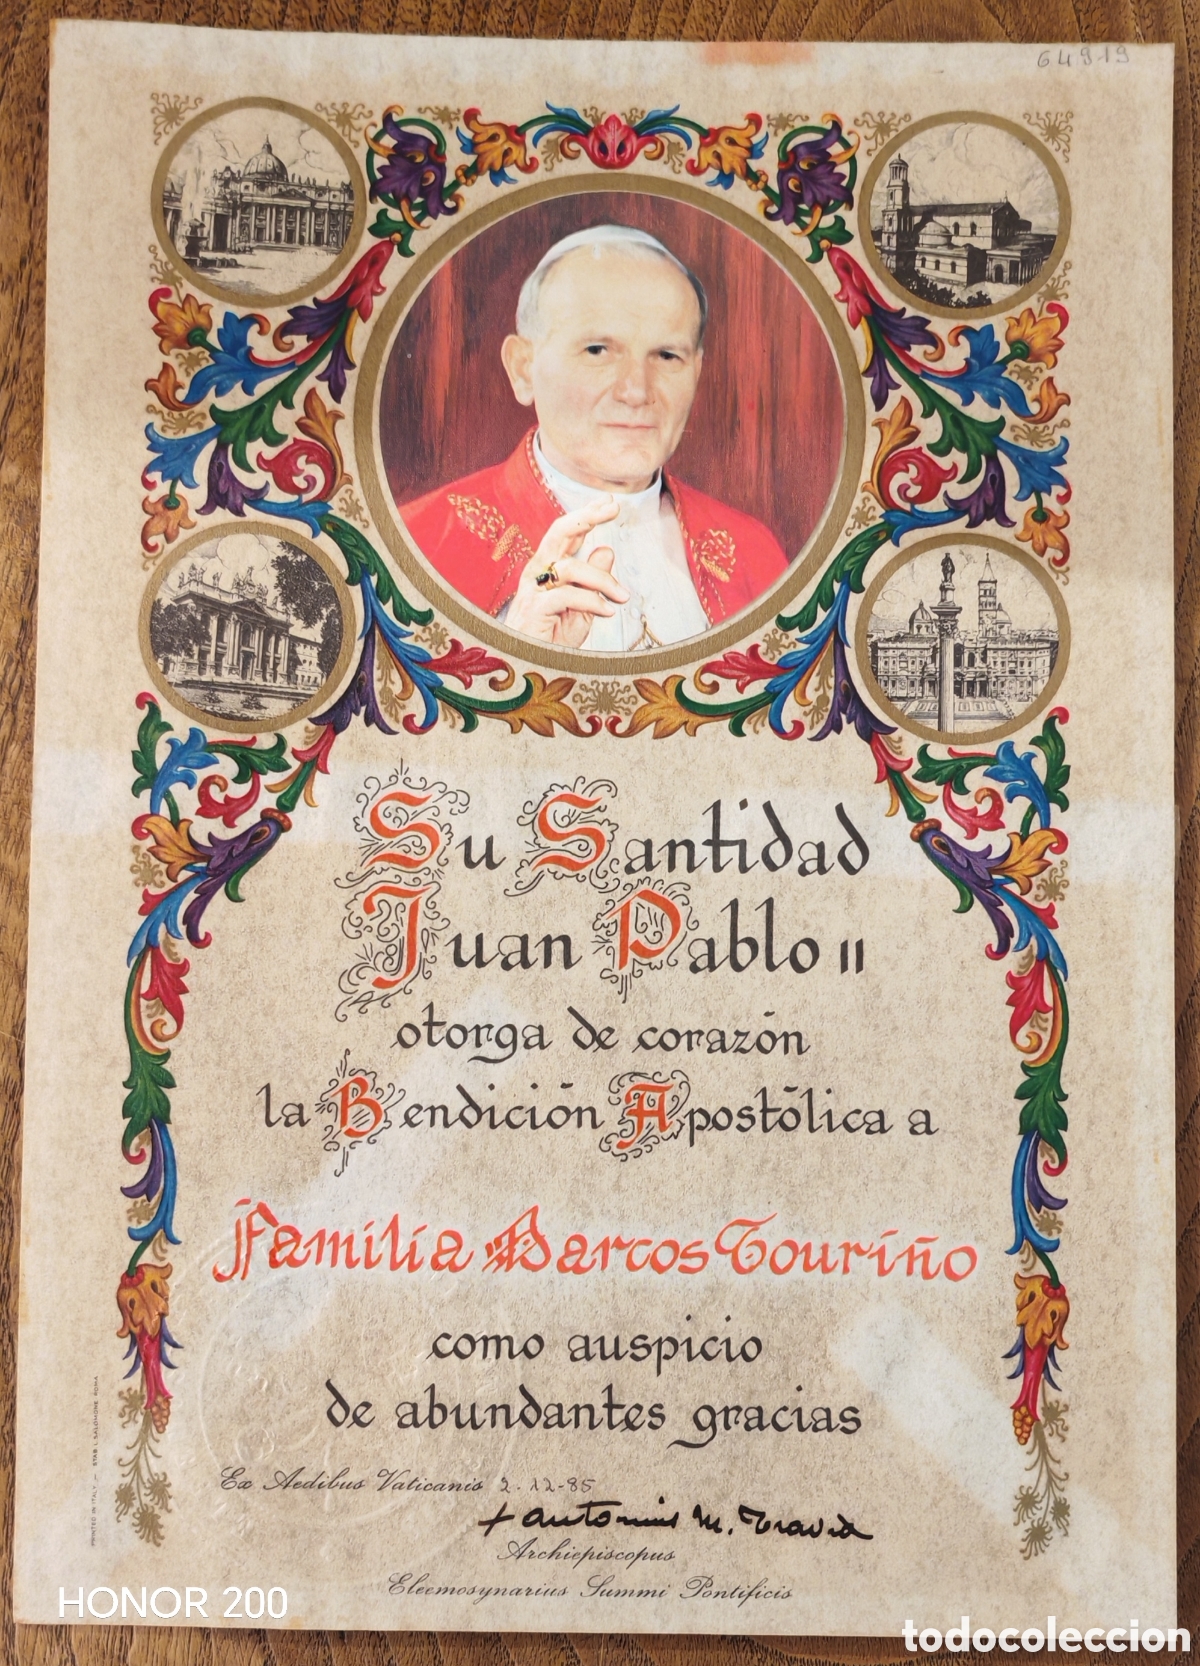 64919
Su Santidad
Juan Pablo II
otorga de corazón
la Bendición Apostólica a
Familia Marcos Touriño
como auspicio
de abundantes gracias
Ex Aedibus Vaticanis 2.12-85
+ Antonius M. Travia
Archiepiscopus
Eleemosynarius Summi Pontificis
PRINTED IN ITALY — STAB. L. SALOMONE ROMA
HONOR 200
todocoleccion